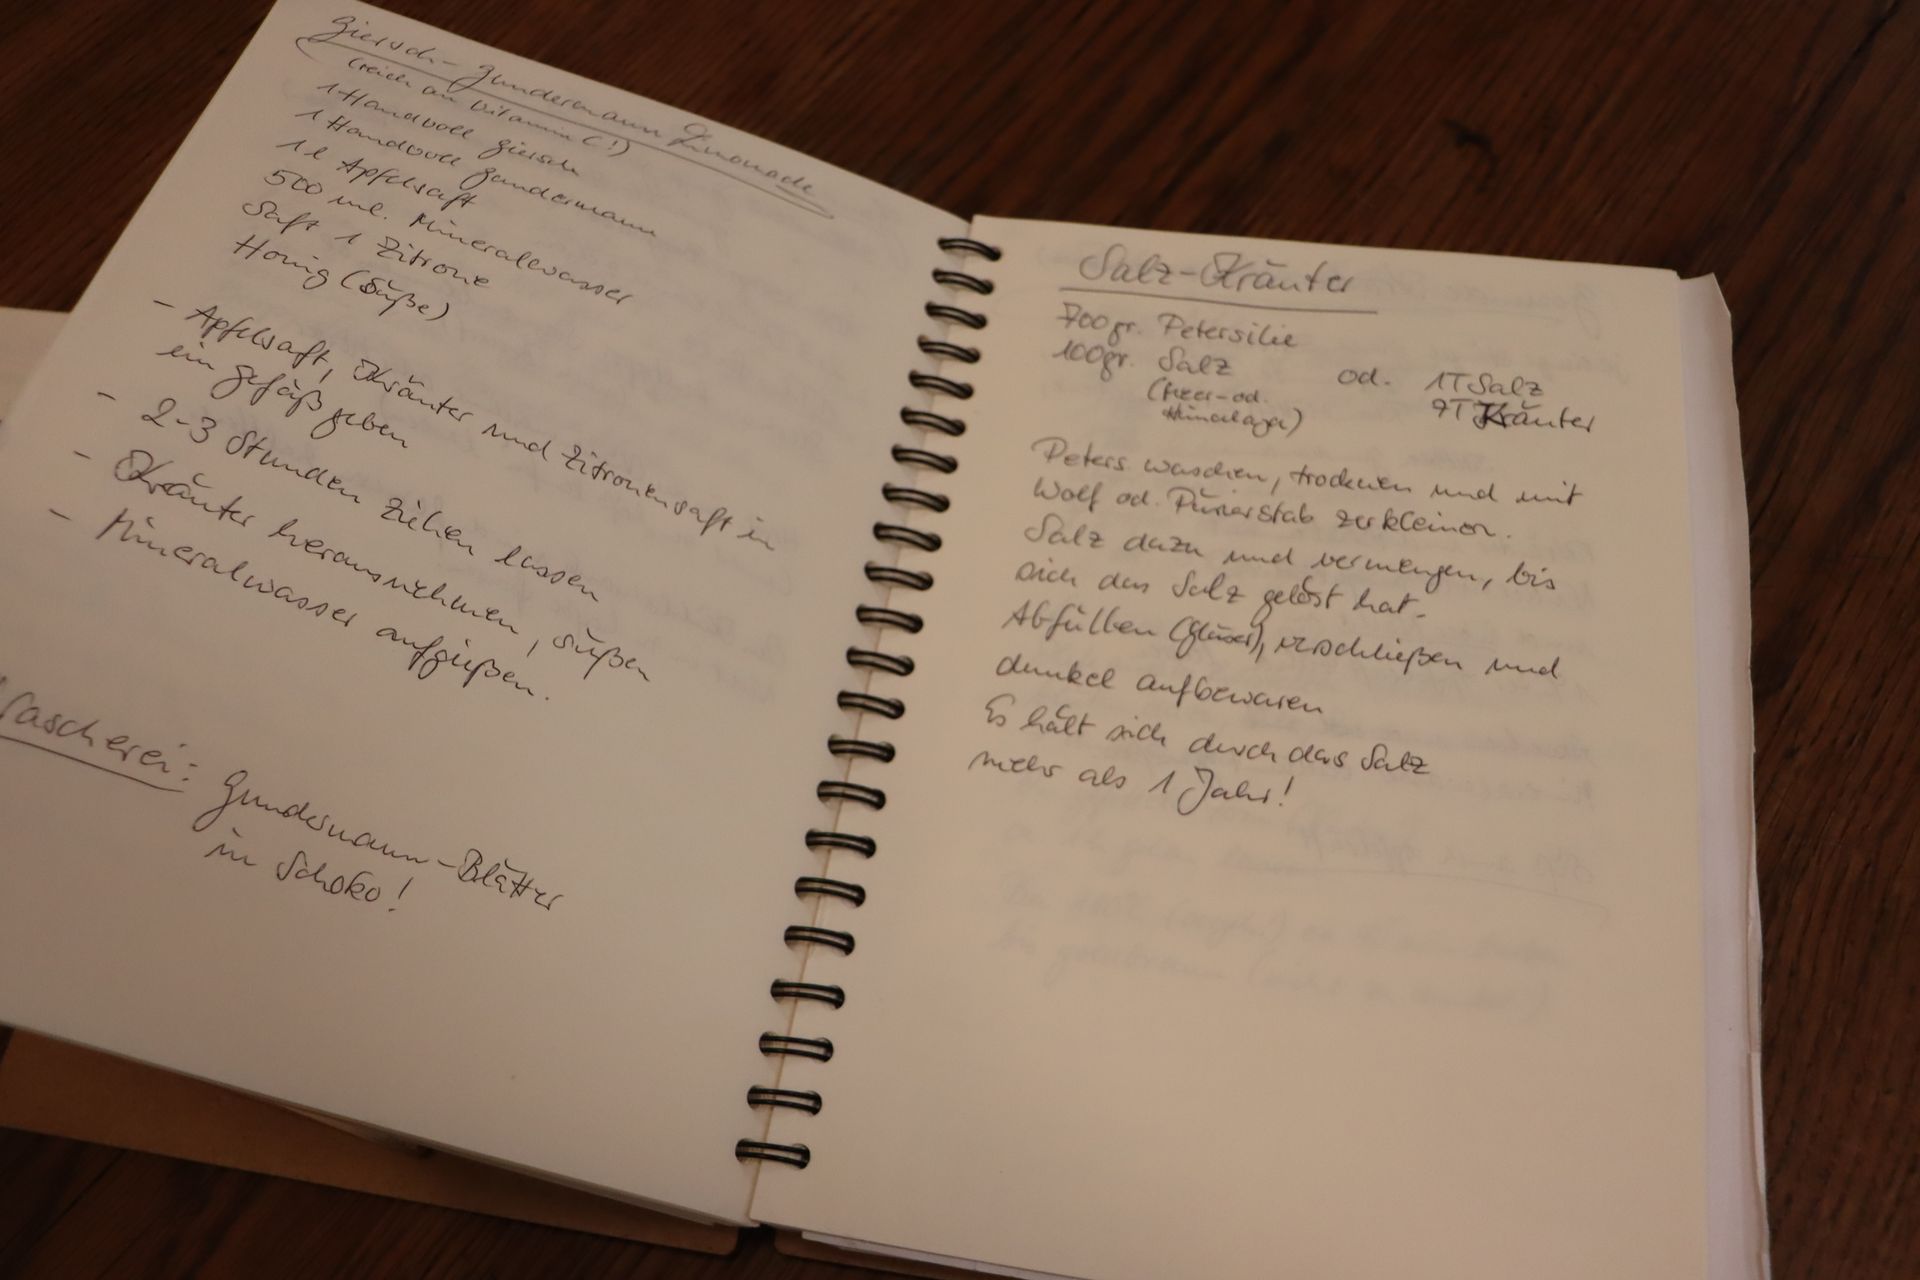 Giersch-Gundermann Limonade
(reich an Vitamin C!)
1 Handvoll Giersch
1 Handvoll Gundermann
1 l Apfelsaft
500 ml. Mineralwasser
Saft 1 Zitrone
Honig (Süße)
- Apfelsaft, Kräuter und Zitronensaft in
ein Gefäß geben
- 2-3 Stunden ziehen lassen
- Kräuter herausnehmen, süßen
- Mineralwasser aufgießen.
Nascherei: Gundermann-Blätter
in Schoko!
Salz-Kräuter
700gr. Petersilie
100gr. Salz od. 1T Salz
(Meer-od. 7T Kräuter
Himalaya)
Peters. waschen, trocknen und mit
Wolf od. Pürierstab zerkleinern.
Salz dazu und vermengen, bis
sich das Salz gelöst hat.
Abfüllen (Gläser), verschließen und
dunkel aufbewaren
Es hält sich durch das Salz
mehr als 1 Jahr!